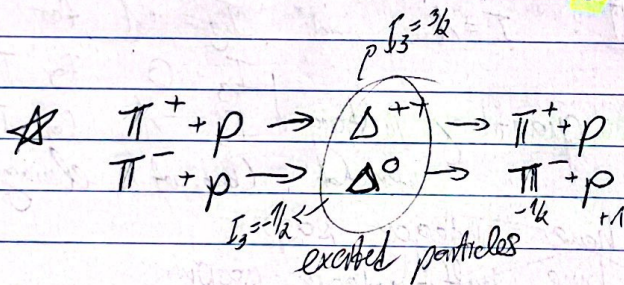 I₃ = 3/2
☆ π⁺ + p → Δ⁺⁺ → π⁺ + p
π⁻ + p → Δ⁰ → π⁻ + p
I₃ = -1/2 -1/2 +1
excited particles